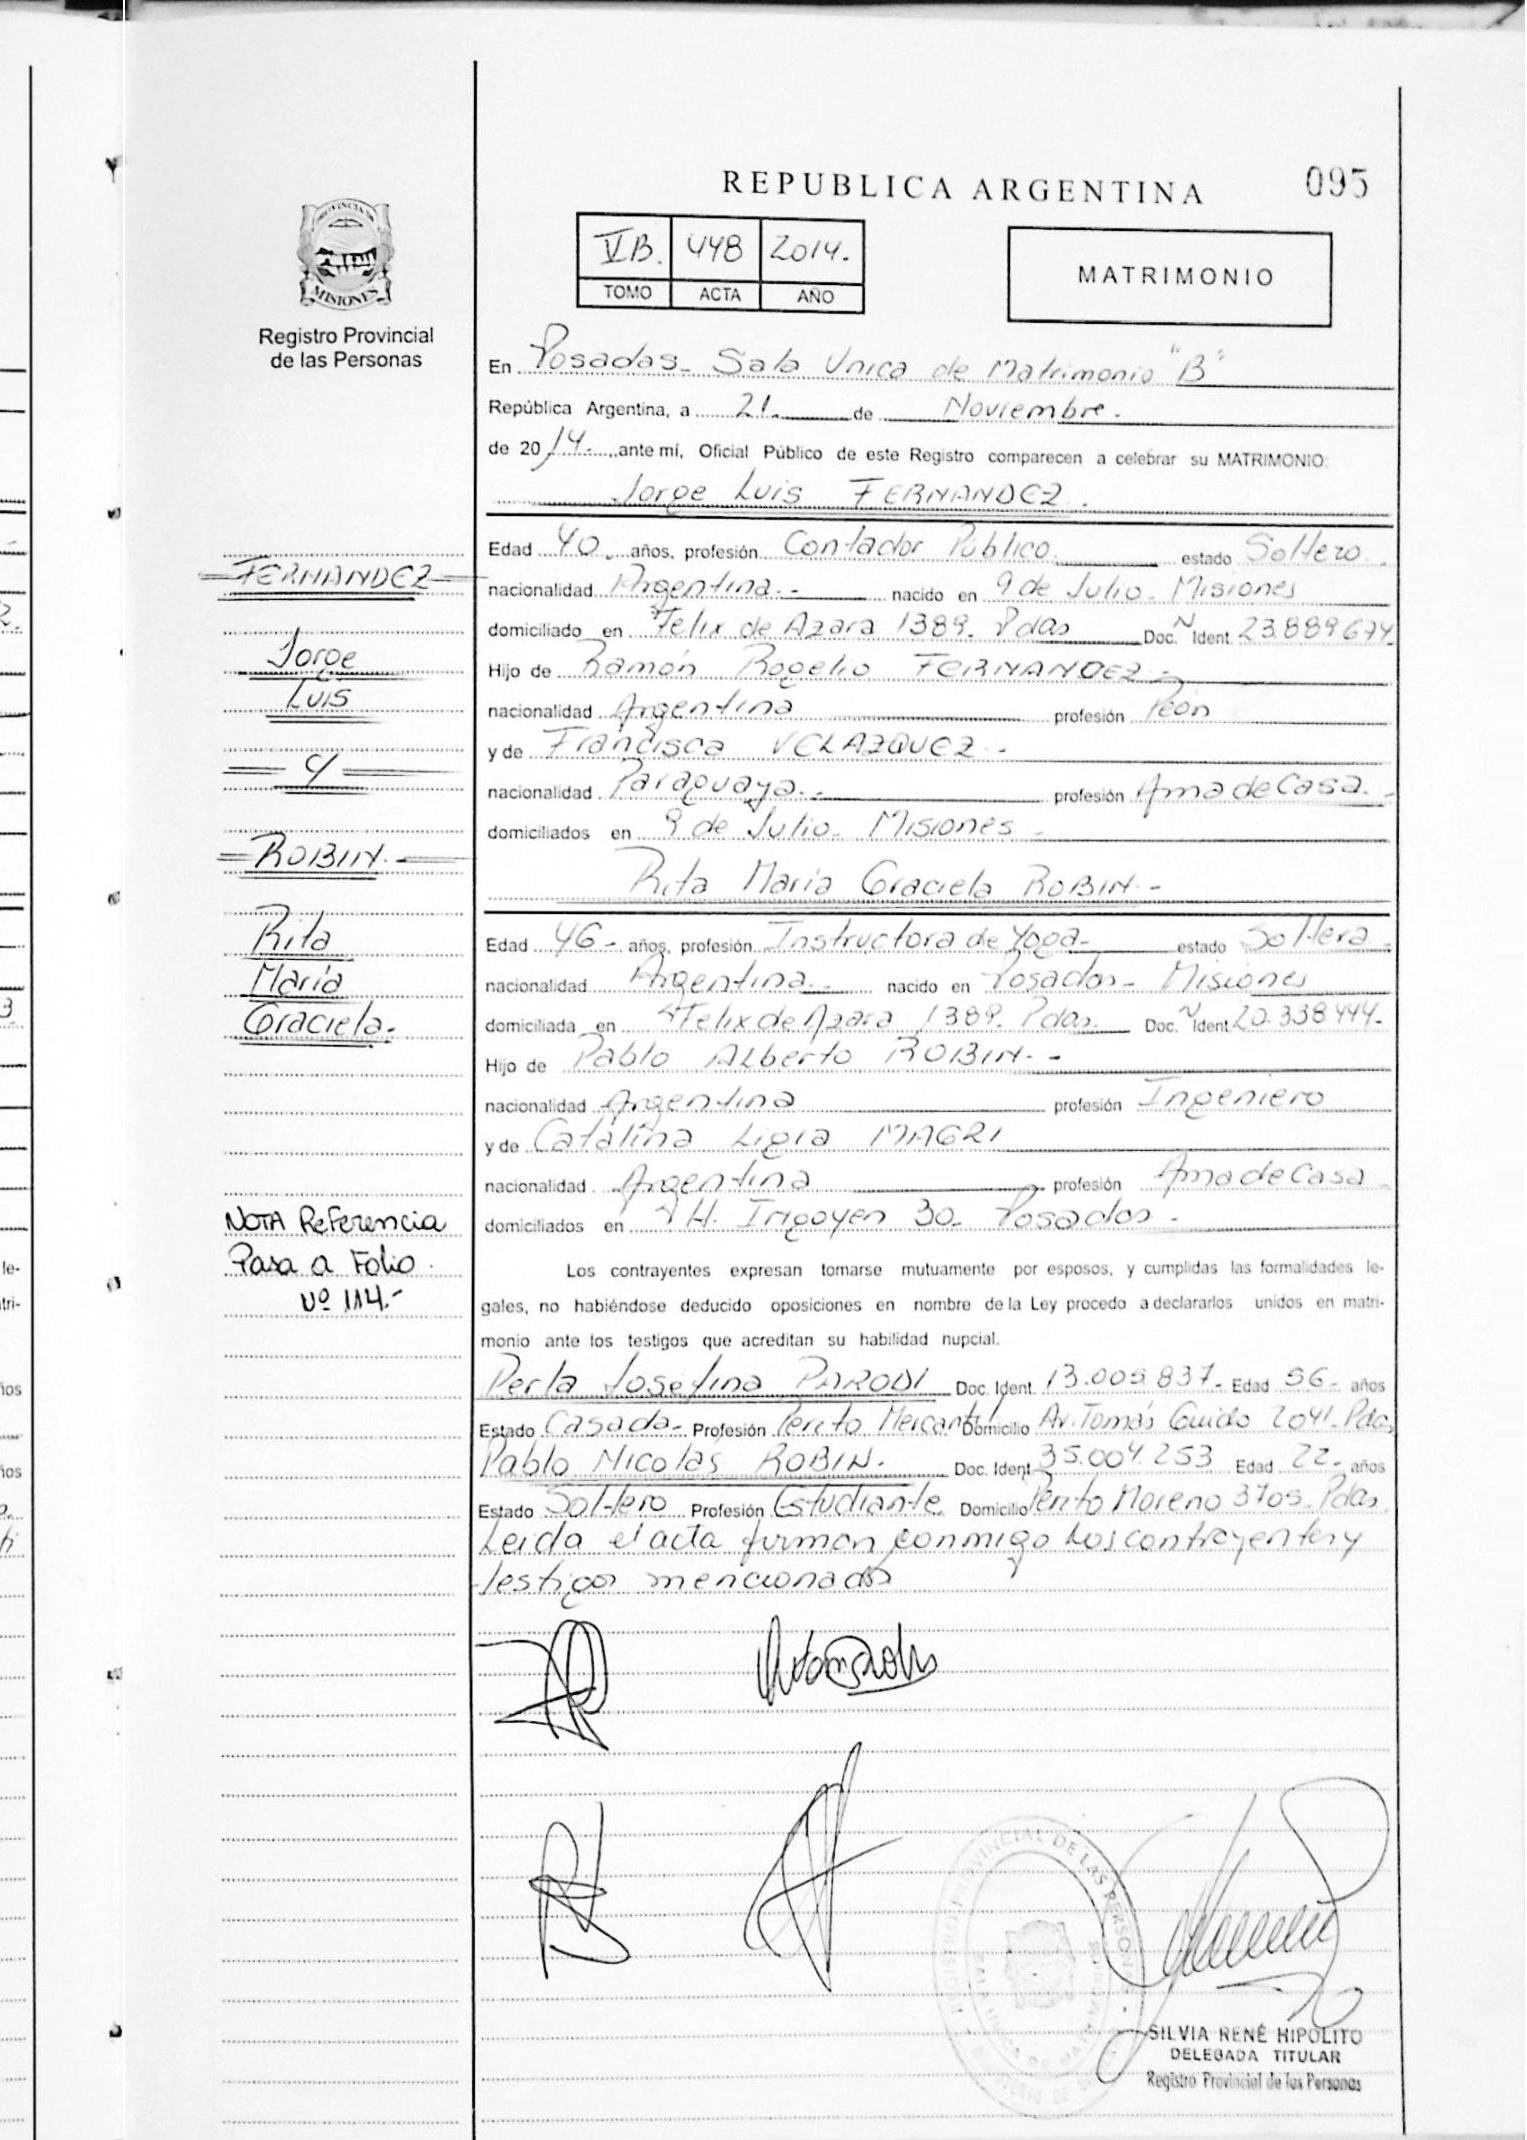 REPUBLICA ARGENTINA
095
PROVINCIA DE
MISIONES
Registro Provincial
de las Personas
VB. 448 2014.
TOMO ACTA AÑO
MATRIMONIO
En Posadas- Sala Unica de Matrimonio "B"
República Argentina, a 21. de Noviembre.
de 20 14. ante mí, Oficial Público de este Registro comparecen a celebrar su MATRIMONIO:
Jorge Luis FERNANDEZ.
Edad 40. años, profesión Contador Público estado Soltero.
nacionalidad Argentina.- nacido en 9 de Julio- Misiones
domiciliado en Felix de Azara 1389. Pdas Doc. N Ident. 23.889674
Hijo de Ramón Rogelio FERNANDEZ-
nacionalidad Argentina profesión Peón
y de Francisca VELAZQUEZ.-
nacionalidad Paraguaya.- profesión Ama de Casa.-
domiciliados en 9 de Julio- Misiones-
Rita María Graciela ROBIN.-
Edad 46- años, profesión Instructora de Yoga- estado Soltera-
nacionalidad Argentina.- nacido en Posadas- Misiones
domiciliada en Felix de Azara 1389. Pdas. Doc. N Ident 20.338444.
Hijo de Pablo Alberto ROBIN.-
nacionalidad Argentina profesión Ingeniero
y de Catalina Ligia MAGRI
nacionalidad Argentina profesión Ama de Casa
domiciliados en H. Irigoyen 30- Posadas-
Los contrayentes expresan tomarse mutuamente por esposos, y cumplidas las formalidades le-
gales, no habiéndose deducido oposiciones en nombre de la Ley procedo a declararlos unidos en matri-
monio ante los testigos que acreditan su habilidad nupcial.
Perla Josefina PARODI Doc. Ident. 13.005.837- Edad 56- años
Estado Casada- Profesión Perito Mercantil Domicilio Av. Tomás Guido 2041-Pdas
Pablo Nicolás ROBIN. Doc. Ident 35.004.253 Edad 22- años
Estado Soltero Profesión Estudiante Domicilio Perito Moreno 3705. Pdas.
Leida el acta firman conmigo los contrayentes y
testigos mencionados
FERNANDEZ
Jorge
Luis
y
ROBIN.-
Rita
María
Graciela.
NOTA Referencia
Pasa a Folio
Nº 114.-
SILVIA RENÉ HIPOLITO
DELEGADA TITULAR
Registro Provincial de las Personas